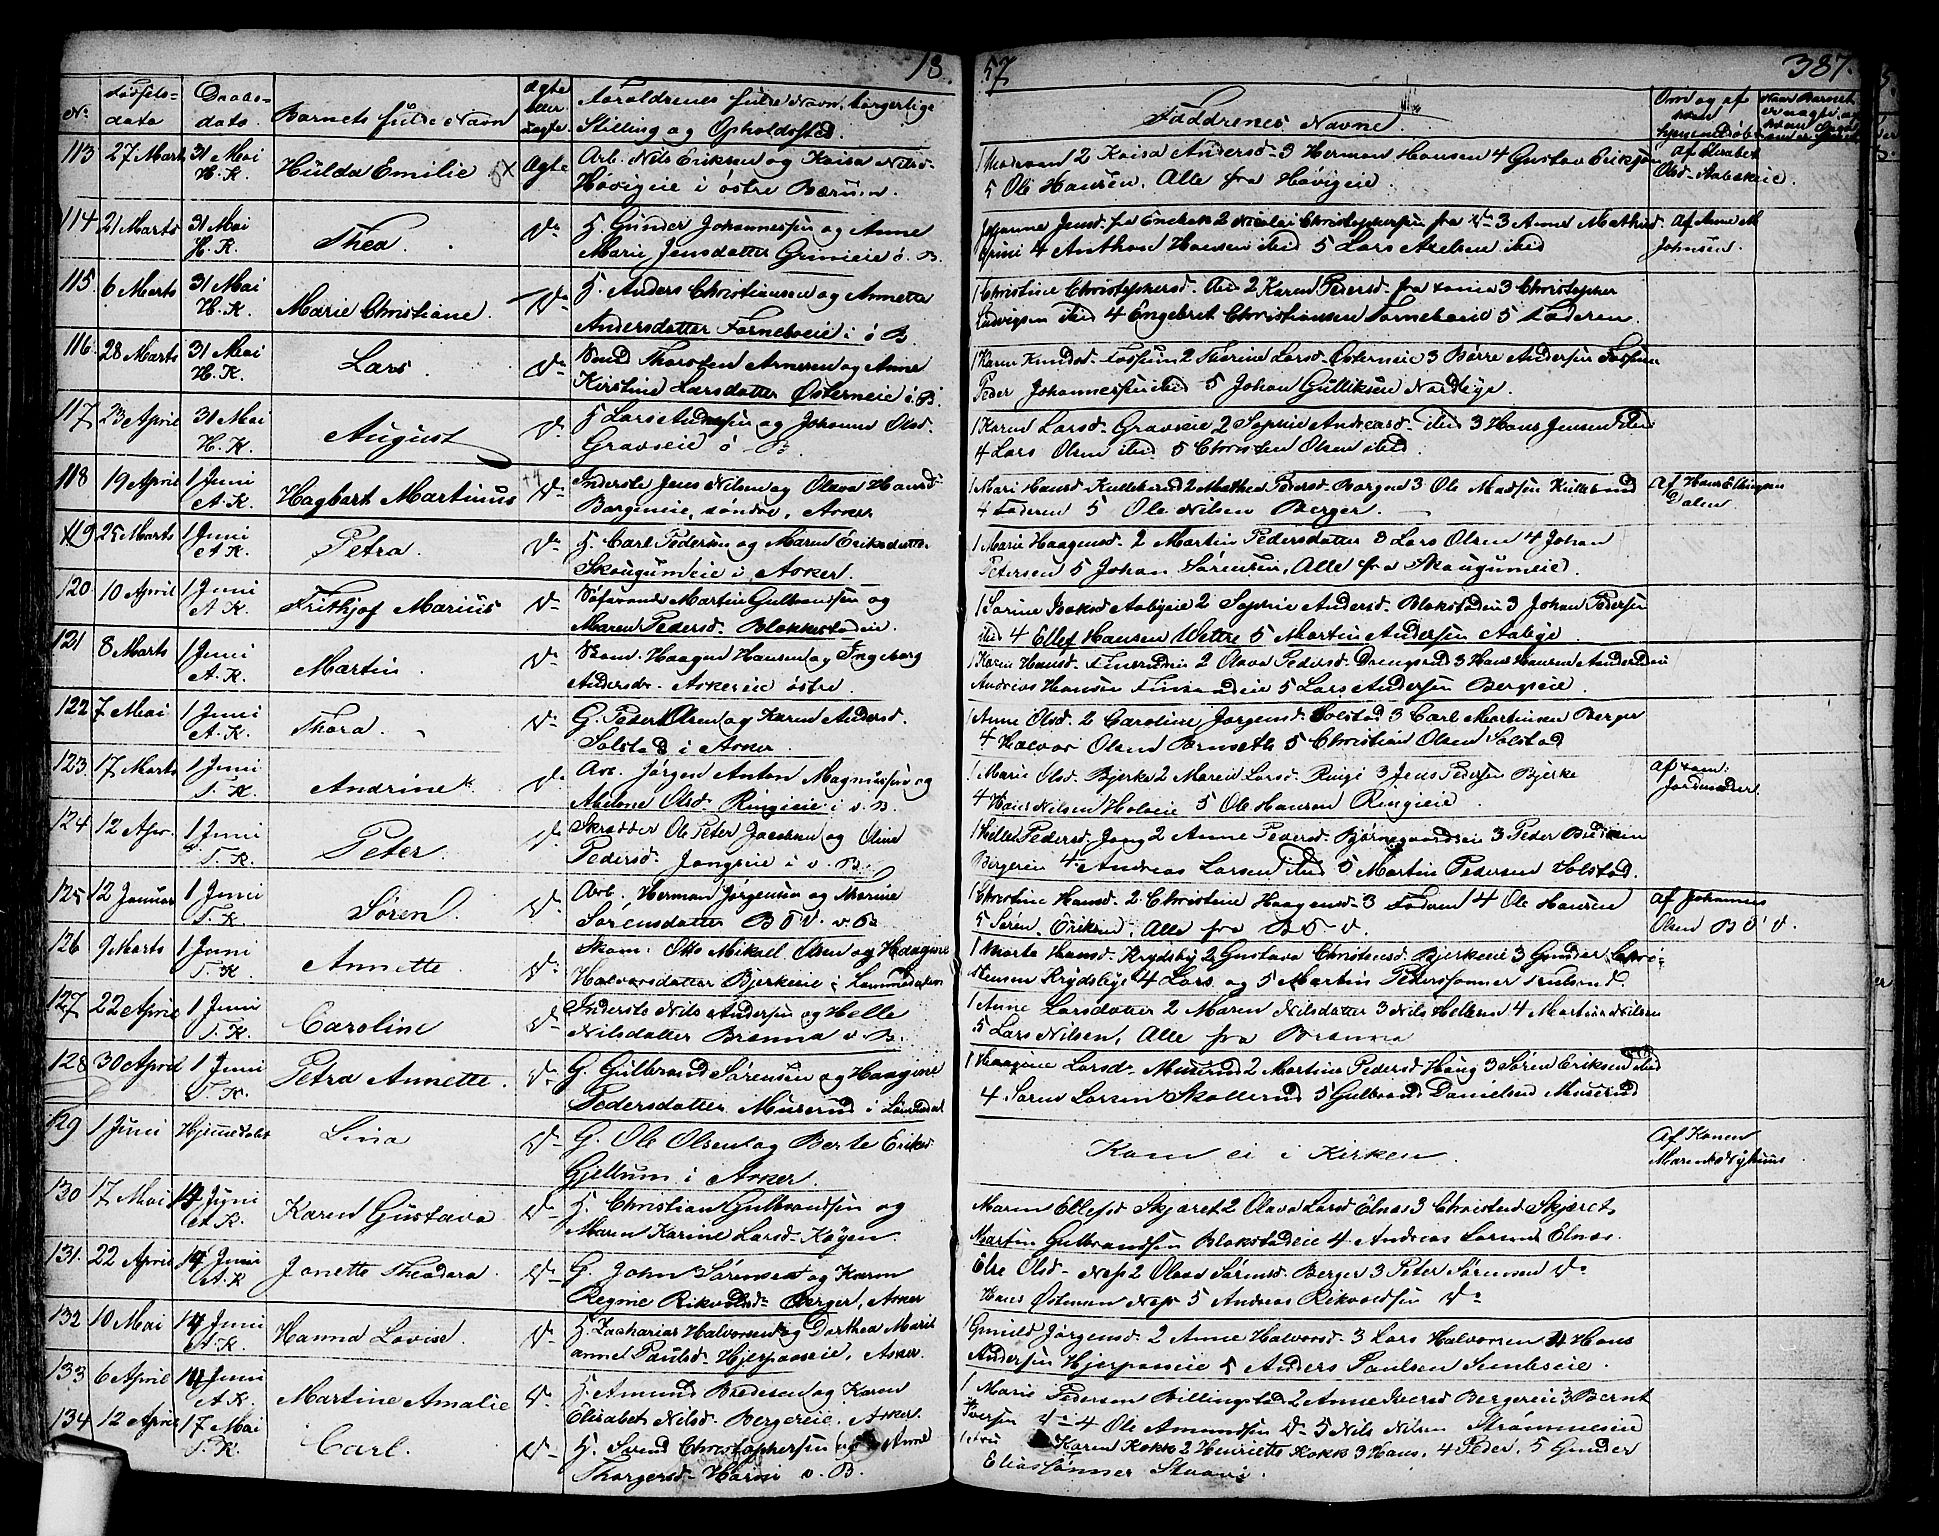 18
57
387.
No
Fødsels-
dato
Daabs-
dato
Barnets fulde Navn
ægte
eller
uægte.
Forældrenes fulde Navn, borgerlige
Stilling og Opholdssted.
Faddrenes Navne.
113
27 Marts
31 Mai
H. K.
Hulda Emilie
Ægte
Arb. Nils Eriksen og Kaisa Nilsd.
Høvigeie i østre Bærum.
2 Kaisa Andersd. 3 Herman Hansen 4 Gustav Eriksen
5 Ole Hansen, Alle fra Høvigeie.
114
21 Marts
31 Mai
H. K.
Thea.
Do
H. Gunder Johannessen og Anne
Marie Jensdatter Grinieie ø. B.
2 Nicolai Christophersen fra Do 3 Anne Mathisd.
Grini 4 Anthon Hansen ibid 5 Lars Axelsen ibid
Af Anne M
Johnsen.
115.
6 Marts
31 Mai
H. K.
Marie Christiane.
Do
H. Anders Christiansen og Annette
Andersdatter Forneboeie i ø B.
1 Christine Christophersd. ibid 2 Karen Pedersd. fra samme 3 Christopher
Ludvigsen ibid 4 Engebret Christiansen Forneboeie 5 Faderen
116.
28 Marts
31 Mai
H. K.
Lars
Do
Thorsten Arnesen og Anne
Kirstine Larsdatter Østerneie ø. B.
1 Karen Knudsd. Fossum 2 Therine Larsd. Østerneie 3 Børre Andersen Fossum
Peder Johannessen ibid 5 Johan Gulliksen Nordbye.
117
23 April
31 Mai
H. K.
August
Do
H. Lars Andersen og Johanne Olsd.
Gravseie ø B.
1 Karen Larsd. Gravseie 2 Sophie Andreasd. ibid 3 Hans Jensen ibid
4 Lars Olsen ibid 5 Christen Olsen ibid.
118
19 April
1 Juni
A. K.
Hagbart Martinus
Do
Inderste Jens Nilsen og Olava Hansd.
Borgeneie, søndre, Asker
1 Mari Hansd. Kullebund 2 Mathea Pedersd. Borgne 3 Ole Madsen Kullebund
4 Faderen 5 Ole Nilsen Berger.
Af Hans Ellingsen
Dalen
119
25 Marts
1 Juni
A. K.
Petra.
Do
H. Carl Pedersen og Maren Eriksdatter
Skougumeie i Asker.
1 Marie Haagensd. 2 Martin Pedersdatter 3 Lars Olsen 4 Johan
Petersen 5 Johan Sørensen, Alle fra Skougumeie.
120
10 April
1 Juni
A K.
Frithjof Marius
Do
Martin Gulbrandsen og
Maren Pedersd. Blakkestadeie.
2 Sophie Andersd. Blakstadeie 3 Johan Pedersen
ibid 4 Ellef Hansen Wettre 5 Martin Andersen Aabye.
121
8 Marts
1 Juni
A. K.
Martin
Do
Haagen Hansen og Ingeborg
Andersdr. Askereie østre.
1 Karen Hansd. 2 Olava Pedersd. Drengsrud 3 Hans Hansen
Andreas Hansen 5 Lars Andersen Bergseie.
122
7 Mai
1 Juni
A. K.
Thora.
Do
G. Peder Olsen og Karen Andersd.
Solstad i Asker.
1 Anne Olsd. 2 Caroline Jørgensd. Solstad 3 Carl Martinsen Berger
4 Halvor Olsen Brusetts 5 Christian Olsen Solstad
123.
17 Marts
1 Juni
T. K.
Andrine
Do
Arb. Jørgen Anton Magnussen og
Olsd. Ringieie i v. B.
1 Marie Olsd. Bjerke 2 Larsd. Ringi 3 Jens Pedersen Bjerke
4 Hans Nilsen 5 Ole Hansen Ringieie.
Af sam.
Jordmoder.
124
12 Apr.
1 Juni
T. K.
Peter.
Do
Skrædder Ole Peter Jacobsen og Oline
Pedersd. Jongseie i v. B.
1 Pedersd. Jong 2 Anne Pedersd. Bjørnegaardseie 3 Peder
Bergereie 4 Andreas Larsen ibid 5 Martin Pedersen Solstad.
125
12 Januar
1 Juni
T. K.
Søren.
Do
Arb. Herman Jørgensen og Marie
Sørensdatter v. B.
1 Christine Hansd. 2 Christine Haagensd. 3 Faderen 4 Ole Hansen
5 Søren Eriksen, Alle fra
Af Johannes
Olsen
126
9 Marts
1 Juni
T. K.
Annette.
Do
Skom. Otto Mikael Olsen og Haagine
Halvorsdatter Bjerkeeie i Lommedalen
1 Marte Hansd. Krydsby 2 Gustava Christensd. Bjerkeeie 3 Gunder Chri-
stensen Krydsbye 4 Lars og 5 Martin Pederssønner
127
22 April
1 Juni
T. K.
Caroline
Do
Inderste Nils Andersen og Helle
Nilsdatter Brenna v. B.
1 Anne Larsdatter 2 Maren Nilsdatter 3 Nils Hellesen 4 Martin Nilsen
5 Lars Nilsen, Alle fra Brenna
128
30 April
1 Juni
T. K.
Petra Annette.
Do
G. Gulbrand Sørensen og Haagine
Pedersdatter Muserud i Lommedal.
1 Haagine Larsd. Muserud 2 Martine Pedersd. Haug 3 Søren Eriksen ibid
4 Søren Larsen Skollerud 5 Gulbrand Danielsen Muserud
129
1 Juni
Hjemmedøbt
Lina
Do
G. Ole Olsen og Berte Eriksd.
Gjellum i Asker.
Kom ei i Kirken.
Af Konen
130
17 Mai
14 Juni
A. K.
Karen Gustava
Do
H. Christian Gulbrandsen og
Maren Karine Larsd. Køyen.
Maren Ellefsd Skjæret 2 Olava Larsd Elnæs 3 Christens Skjæret
Martin Gulbrandsen Blakstadeie 4 Andreas Larsen Elnæs.
131.
22 April
14 Juni
A. K
Janette Theodora.
Do
G. John Sørensen og Karen
Regine Rikvoldsd. Berger, Asker
Else Olsd. Næs 2 Olava Sørensd. Berger 3 Peter Sørensen Do
Hans Østman Næs 5 Andreas Rikvoldsen Do
132
10 Mai
14 Juni
A. K.
Hanna Lovise.
Do
H. Zacharias Halvorsen og Dorthea Mari-
anne Paulsd. Hjerpaaseie, Asker.
1 Gunild Jørgensd. 2 Anne Halvorsd. 3 Lars Halvorsen 4 Hans
Andersen Hjerpaaseie 5 Anders Paulsen
133
6 April
14 Juni
A. K.
Martine Amalie
Do
H. Amund Bredesen og Karen
Elisabet Nilsd. Bergereie, Asker.
1 Marie Pedersen Billingstad 2 Anne Iversd Bergereie 3 Bernt
Iversen Do 4 Ole Amundsen Do 5 Nils Nilsen Strømmeseie
134
12 April
17 Mai
T. K.
Carl.
Do
H. Svend Christophersen og Anne
Thorgersd. Horni v. B.
Karen Kokk 2 Henriette Kokk 3 Hans, 4 Peder, 5 Gunder
Eliassønner Staavi.